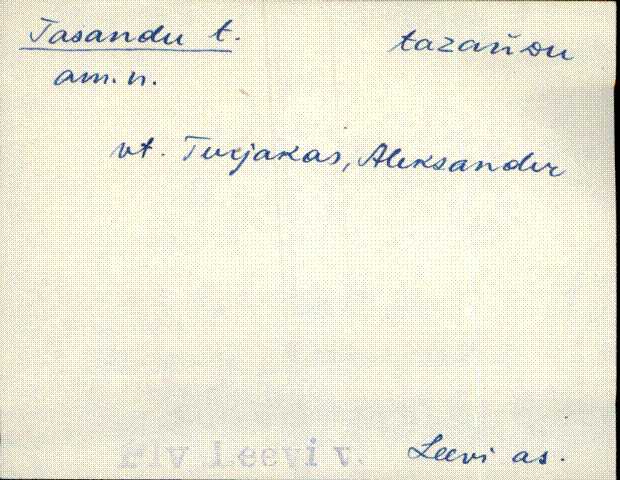 Tasandu t. tazańdu
am. n.
vt. Tuvjakas, Aleksander
Plv Leevi v. Leevi as.